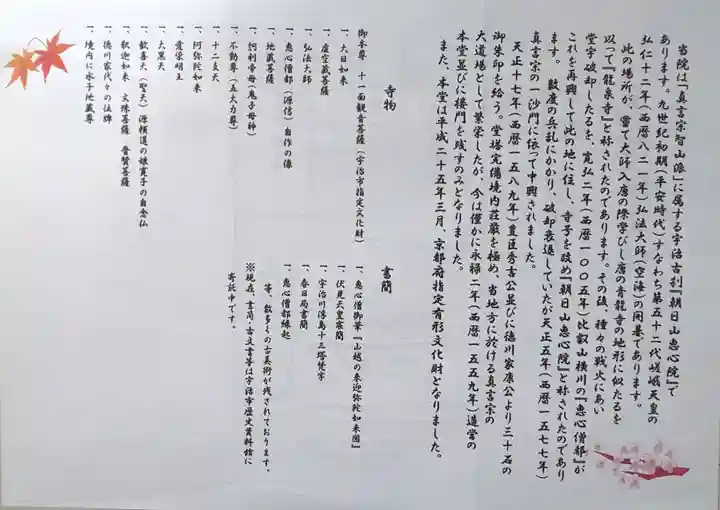 当院は「真言宗智山派」に属する宇治古刹『朝日山恵心院』で
あります。九世紀初期(平安時代)すなわち第五十二代嵯峨天皇の
弘仁十二年(西暦八二一年)弘法大師(空海)の開基であります。
此の場所が、嘗て大師入唐の際学びし唐の青龍寺の地形に似たるを
以って『龍泉寺』と称されたのであります。その後、種々の戦火にあい
堂宇破却したるを、寛弘二年(西暦一〇〇五年)比叡山横川の『恵心僧都』が
これを再興して此の地に住し、寺号を改め『朝日山恵心院』と称されたのであり
ます。 数度の兵乱にかかり、破却衰退していたが天正五年(西暦一五七七年)
真言宗の一沙門に依って中興されました。
天正十七年(西暦一五八九年)豊臣秀吉公並びに徳川家康公より三十石の
御朱印を給う。堂塔完備境内荘厳を極め、当地方に於ける真言宗の
大道場として繁栄したが、今は僅かに永禄二年(西暦一五五九年)造営の
本堂並びに楼門を残すのみとなりました。
また、本堂は平成二十五年三月、京都府指定有形文化財となりました。
寺物
御本尊 十一面観音菩薩(宇治市指定文化財)
一、大日如来
一、虚空蔵菩薩
一、弘法大師
一、恵心僧都(源信)自作の像
一、地蔵菩薩
一、訶利帝母(鬼子母神)
一、不動尊(五大力尊)
一、十二支天
一、阿弥陀如来
一、愛染明王
一、大黒天
一、歓喜天(聖天)源頼道の娘寛子の自念仏
一、釈迦如来 文殊菩薩 普賢菩薩
一、徳川家代々の位牌
一、境内に水子地蔵尊
書簡
一、恵心僧都御筆『山越の来迎弥陀如来図』
一、伏見天皇宸簡
一、宇治川浮島十三塔梵字
一、春日局書簡
一、恵心僧都縁起
等、数多くの古美術が残されております。
※現在、書簡・古文書等は宇治市歴史資料館に
寄託中です。